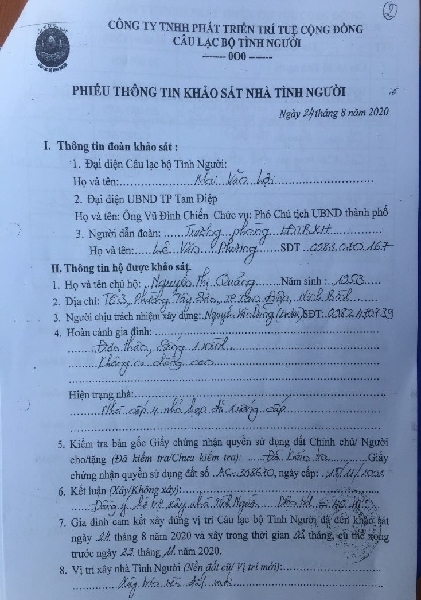 2
CÔNG TY TNHH PHÁT TRIỂN TRÍ TUỆ CỘNG ĐỒNG
CÂU LẠC BỘ TÌNH NGƯỜI
------- 000 -------
PHIẾU THÔNG TIN KHẢO SÁT NHÀ TÌNH NGƯỜI
Ngày 24 tháng 8 năm 2020
I. Thông tin đoàn khảo sát :
1. Đại diện Câu lạc bộ Tình Người:
Họ và tên: Văn Lợi
2. Đại diện UBND TP Tam Điệp
Họ và tên: Ông Vũ Đình Chiến Chức vụ: Phó Chủ tịch UBND thành phố
3. Người dẫn đoàn: Trưởng phòng
Họ và tên: Lê Văn Phương SĐT
II. Thông tin hộ được khảo sát.
1. Họ và tên chủ hộ: Nguyễn Thị Quảng Năm sinh : 1953
2. Địa chỉ: Phường Tây Sơn, TP Tam Điệp, Ninh Bình
3. Người chịu trách nhiệm xây dựng: Nguyễn SĐT:
4. Hoàn cảnh gia đình:
Đơn thân, sống 1 mình
Không có
Hiện trạng nhà:
Nhà cấp 4 nhỏ hẹp đã xuống cấp
5. Kiểm tra bản gốc Giấy chứng nhận quyền sử dụng đất Chính chủ/ Người
cho/tặng (Đã kiểm tra/Chưa kiểm tra): Đã kiểm tra Giấy
chứng nhận quyền sử dụng đất số ngày cấp:
6. Kết luận (Xây/Không xây):
Đồng ý hỗ trợ xây nhà Tình Người
7. Gia đình cam kết xây đúng vị trí Câu lạc bộ Tình Người đã đến khảo sát
ngày 24 tháng 8 năm 2020 và xây trong thời gian tháng, cụ thể xong
trước ngày 22 tháng 11 năm 2020.
8. Vị trí xây nhà Tình Người (Nền đất cũ/ Vị trí mới):
Xây trên nền đất mới